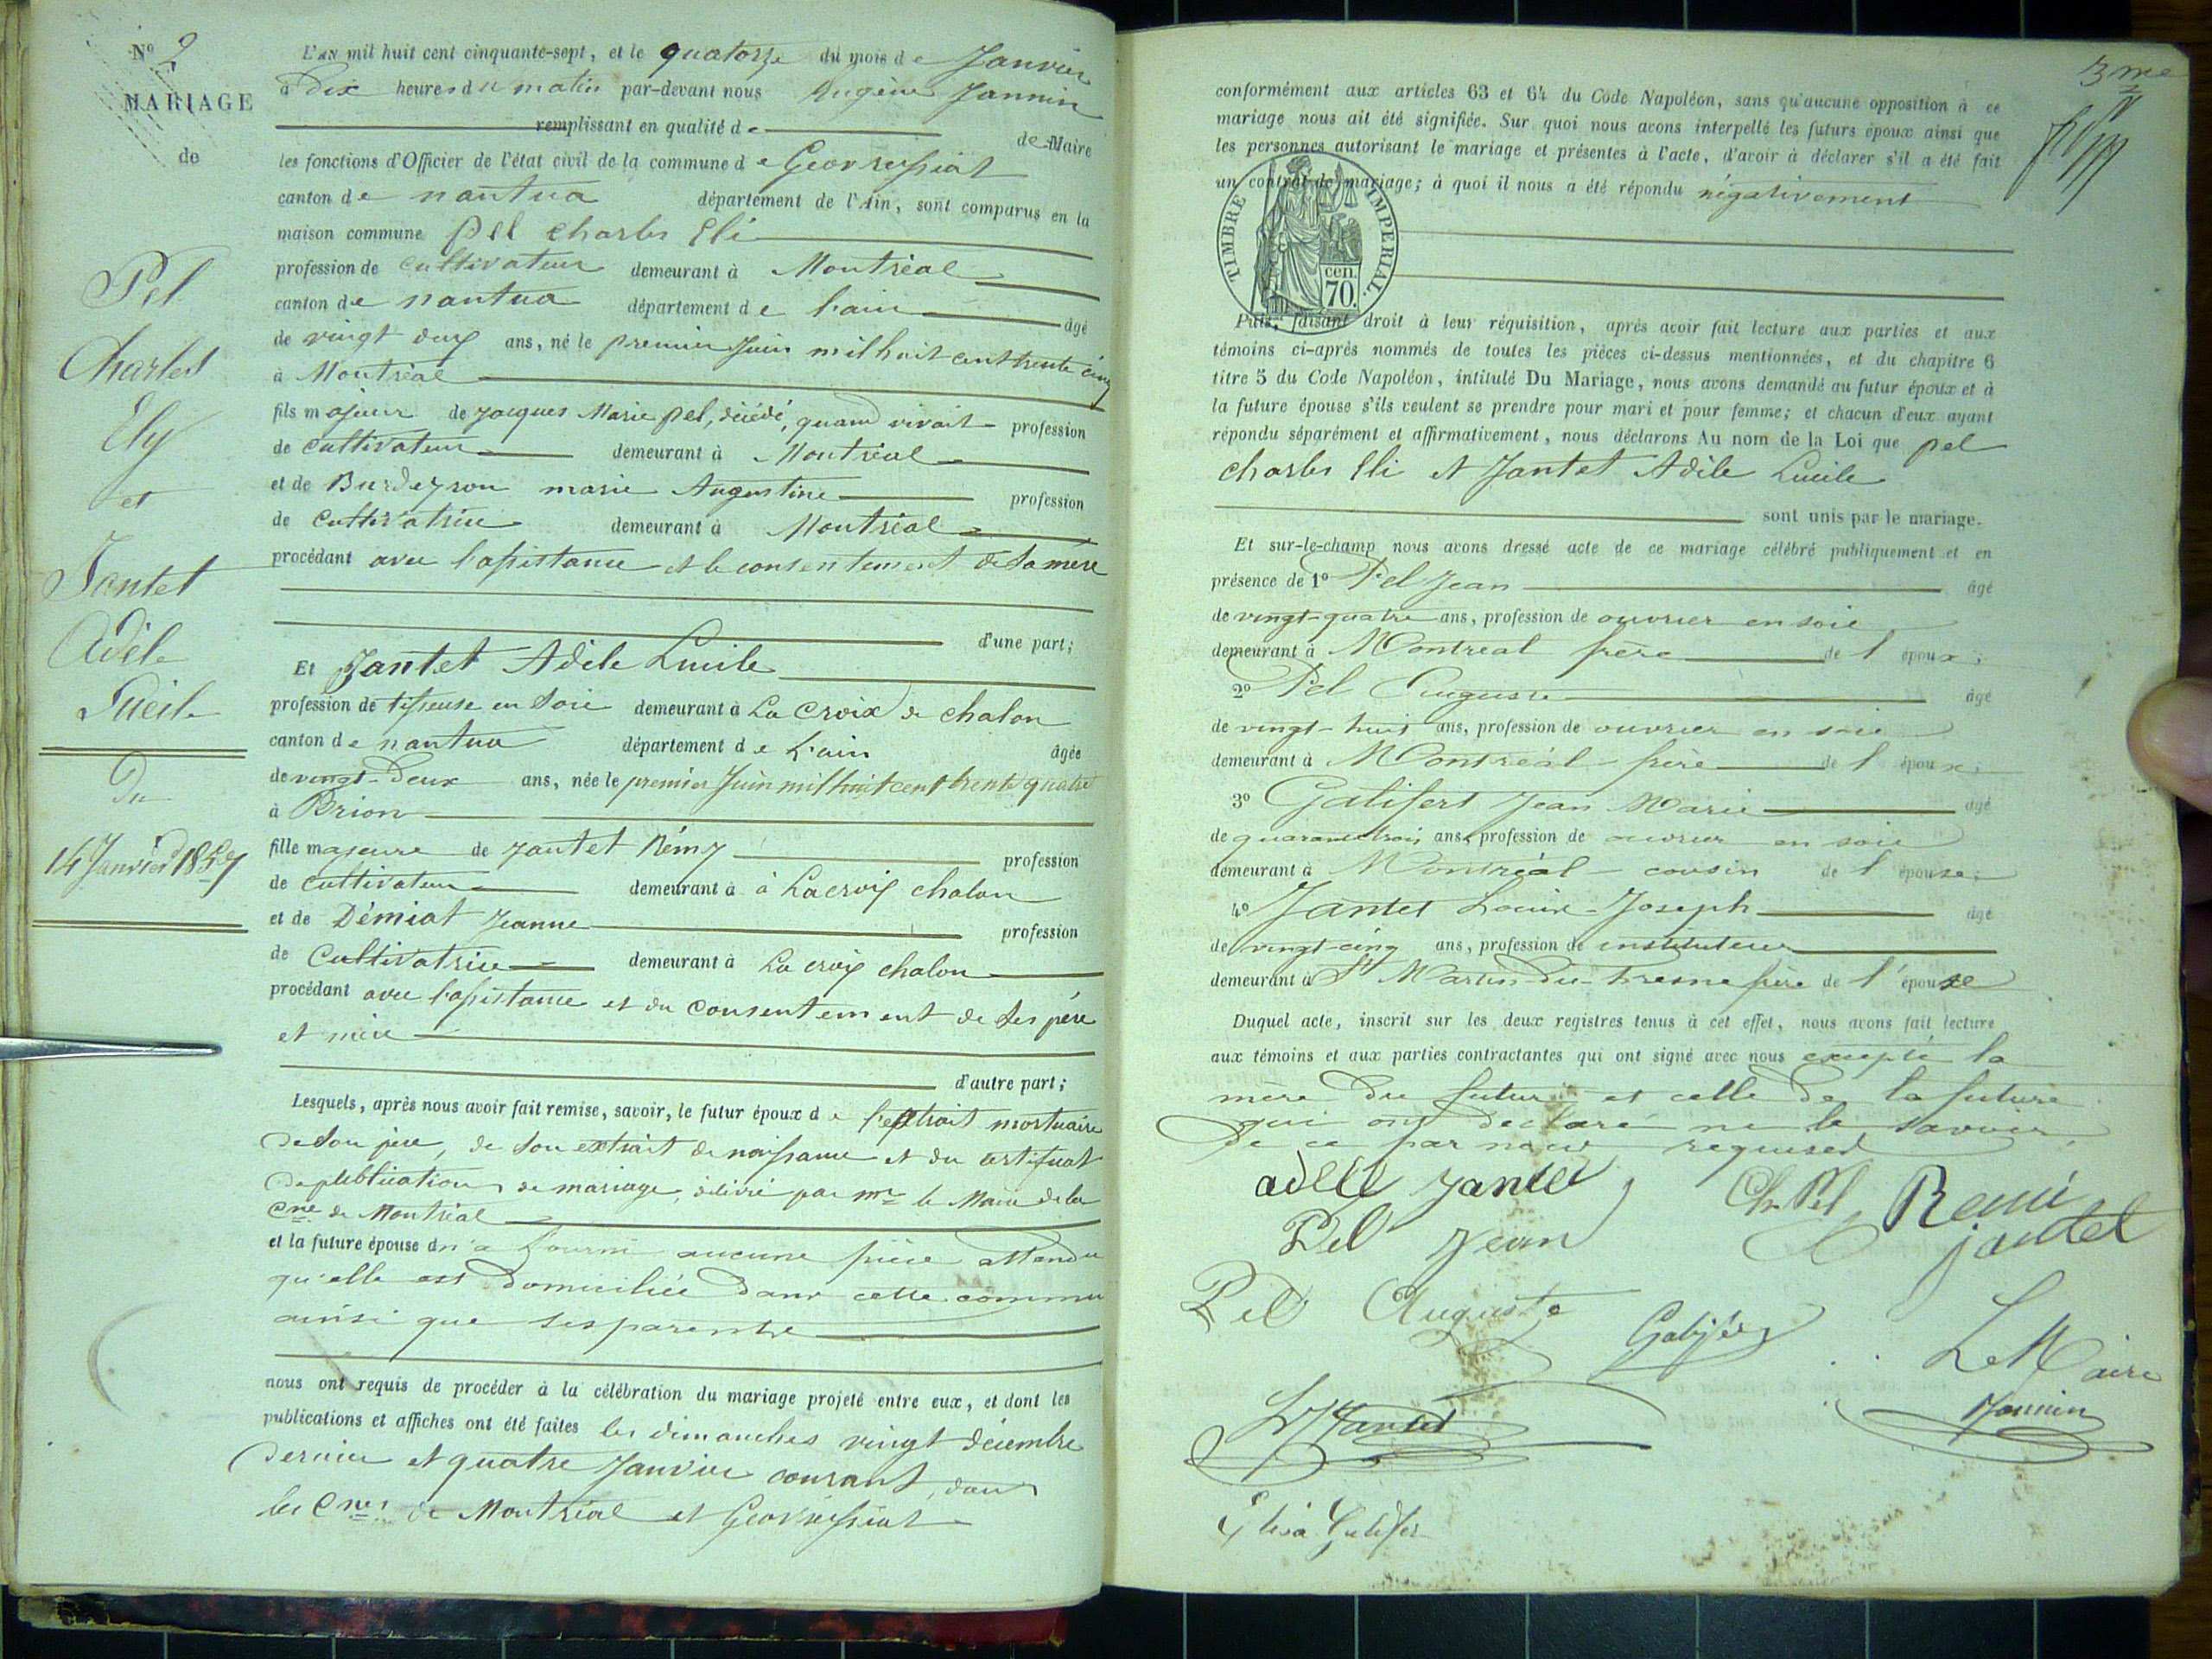 N° 2
MARIAGE
de
Pel
Charles
Ely
et
Jantet
Adèle
Lucile
Du
14 Janvier 1857
L'an mil huit cent cinquante-sept, et le quatorze du mois de Janvier
à Dix heures du matin par-devant nous Eugène Jannin
remplissant en qualité de de Maire
les fonctions d'Officier de l'état civil de la commune de Geovreissiat
canton de nantua département de l'Ain, sont comparus en la
maison commune Pel charles Eli
profession de cultivateur demeurant à Montréal
canton de nantua département de l'ain âgé
de vingt deux ans, né le premier Juin mil huit cent trente cinq
à Montréal
fils majeur de Jacques Marie pel, décédé, quand vivait profession
de cultivateur demeurant à Montréal
et de Burdeyron marie Augustine profession
de cultivatrice demeurant à Montréal
procédant avec l'assistance et le consentement de sa mère
d'une part;
Et Jantet Adèle Lucile
profession de tisseuse en Soie demeurant à La Croix de chalon
canton de nantua département de L'ain âgée
de vingt-Deux ans, née le premier Juin mil huit cent trente quatre
à Brion
fille majeure de Jantet Rémy profession
de cultivateur demeurant à à Lacroix chalon
et de Démiat Jeanne profession
de Cultivatrice demeurant à La croix chalon
procédant avec l'assistance et du consentement de ses père
et mère
d'autre part;
Lesquels, après nous avoir fait remise, savoir, le futur époux de l'extrait mortuaire
de son père, de son extrait de naissance et du certificat
de publication de mariage, délivré par mr le Maire de la
Cne de Montréal
et la future épouse d n'a fourni aucune pièce attendu
qu'elle est Domiciliée Dans cette commu
ainsi que ses parents
nous ont requis de procéder à la célébration du mariage projeté entre eux, et dont les
publications et affiches ont été faites les dimanches vingt décembre
dernier et quatre Janvier courant, dans
les Cnes de Montréal et Geovreissiat
3me
conformément aux articles 63 et 64 du Code Napoléon, sans qu'aucune opposition à ce
mariage nous ait été signifiée. Sur quoi nous avons interpellé les futurs époux ainsi que
les personnes autorisant le mariage et présentes à l'acte, d'avoir à déclarer s'il a été fait
un contrat de mariage; à quoi il nous a été répondu négativement
TIMBRE IMPERIAL.
cen.
70.
Puis, faisant droit à leur réquisition, après avoir fait lecture aux parties et aux
témoins ci-après nommés de toutes les pièces ci-dessus mentionnées, et du chapitre 6
titre 5 du Code Napoléon, intitulé Du Mariage, nous avons demandé au futur époux et à
la future épouse s'ils veulent se prendre pour mari et pour femme; et chacun d'eux ayant
répondu séparément et affirmativement, nous déclarons Au nom de la Loi que pel
charles Eli et Jantet Adèle Lucile
sont unis par le mariage.
Et sur-le-champ nous avons dressé acte de ce mariage célébré publiquement et en
présence de 1° Pel Jean âgé
de vingt-quatre ans, profession de ouvrier en soie
demeurant à Montréal frère de l'époux;
2° Pel Auguste âgé
de vingt-huit ans, profession de ouvrier en soie
demeurant à Montréal frère de l'époux;
3° Galifert Jean Marie âgé
de quarante trois ans, profession de ouvrier en soie
demeurant à Montréal cousin de l'épouse;
4° Jantet Louis-Joseph âgé
de vingt-cinq ans, profession de instituteur
demeurant à St Martin-du-Fresne frère de l'épouse
Duquel acte, inscrit sur les deux registres tenus à cet effet, nous avons fait lecture
aux témoins et aux parties contractantes qui ont signé avec nous excepté la
mère du futur et celle de la future
qui ont déclaré ne le savoir,
de ce par nous requises
adèle Jantet Ch. Pel Remi
jantet
Pel Jean
Pel Auguste
Galifer
Le Maire
LJ Jantet
Jannin
Elisa Galifer